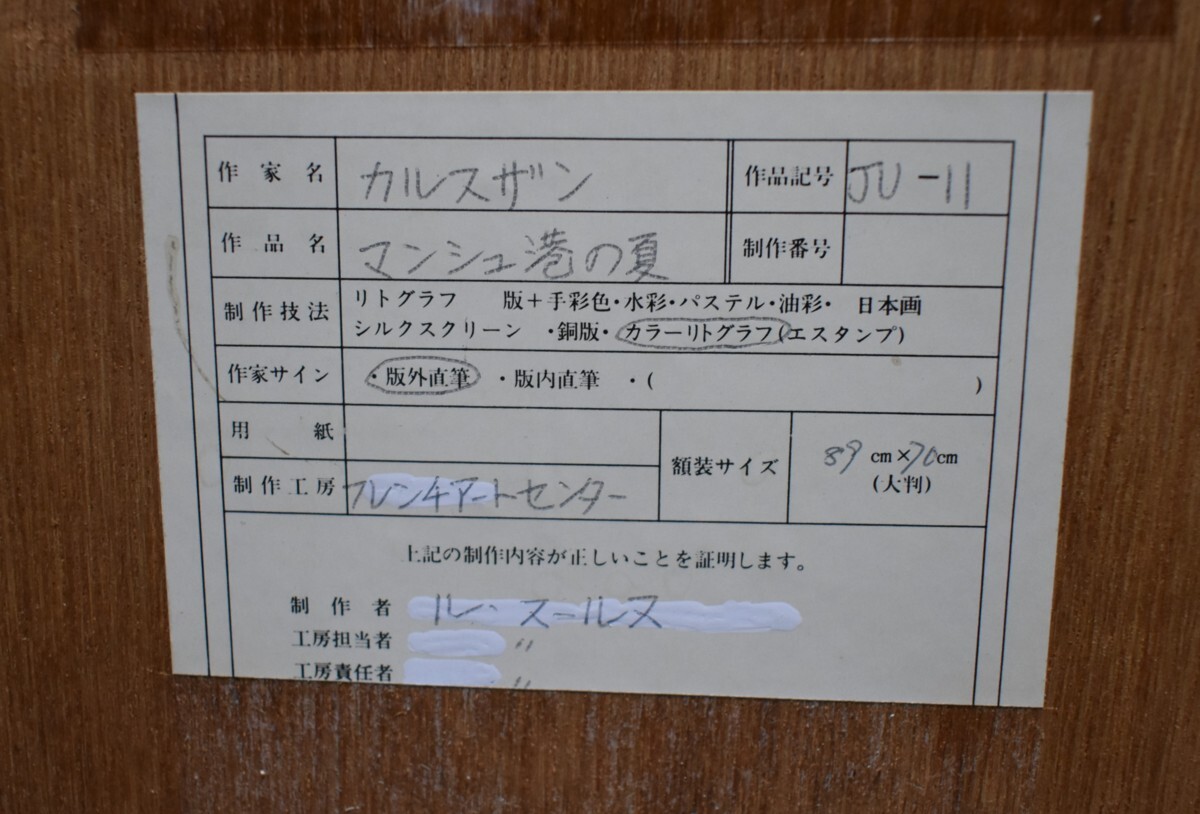 作家名 カルスザン 作品記号 JU-11
作品名 マンシュ港の夏 制作番号
制作技法 リトグラフ 版+手彩色・水彩・パステル・油彩・ 日本画
シルクスクリーン ・銅版・ カラーリトグラフ(エスタンプ)
作家サイン ・版外直筆 ・版内直筆 ・( )
用紙
額装サイズ 89cm×70cm
(大判)
制作工房 フレンチアートセンター
上記の制作内容が正しいことを証明します。
制作者 ル・スールヌ
工房担当者 〃
工房責任者 〃